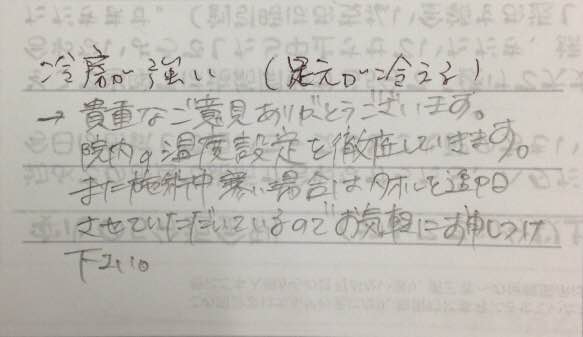 冷房が強い (足元が冷える)
→ 貴重なご意見ありがとうございます。
院内の温度設定を徹底していきます。
また施術中寒い場合はタオルを追加
させていただいているのでお気軽にお申しつけ
下さい。